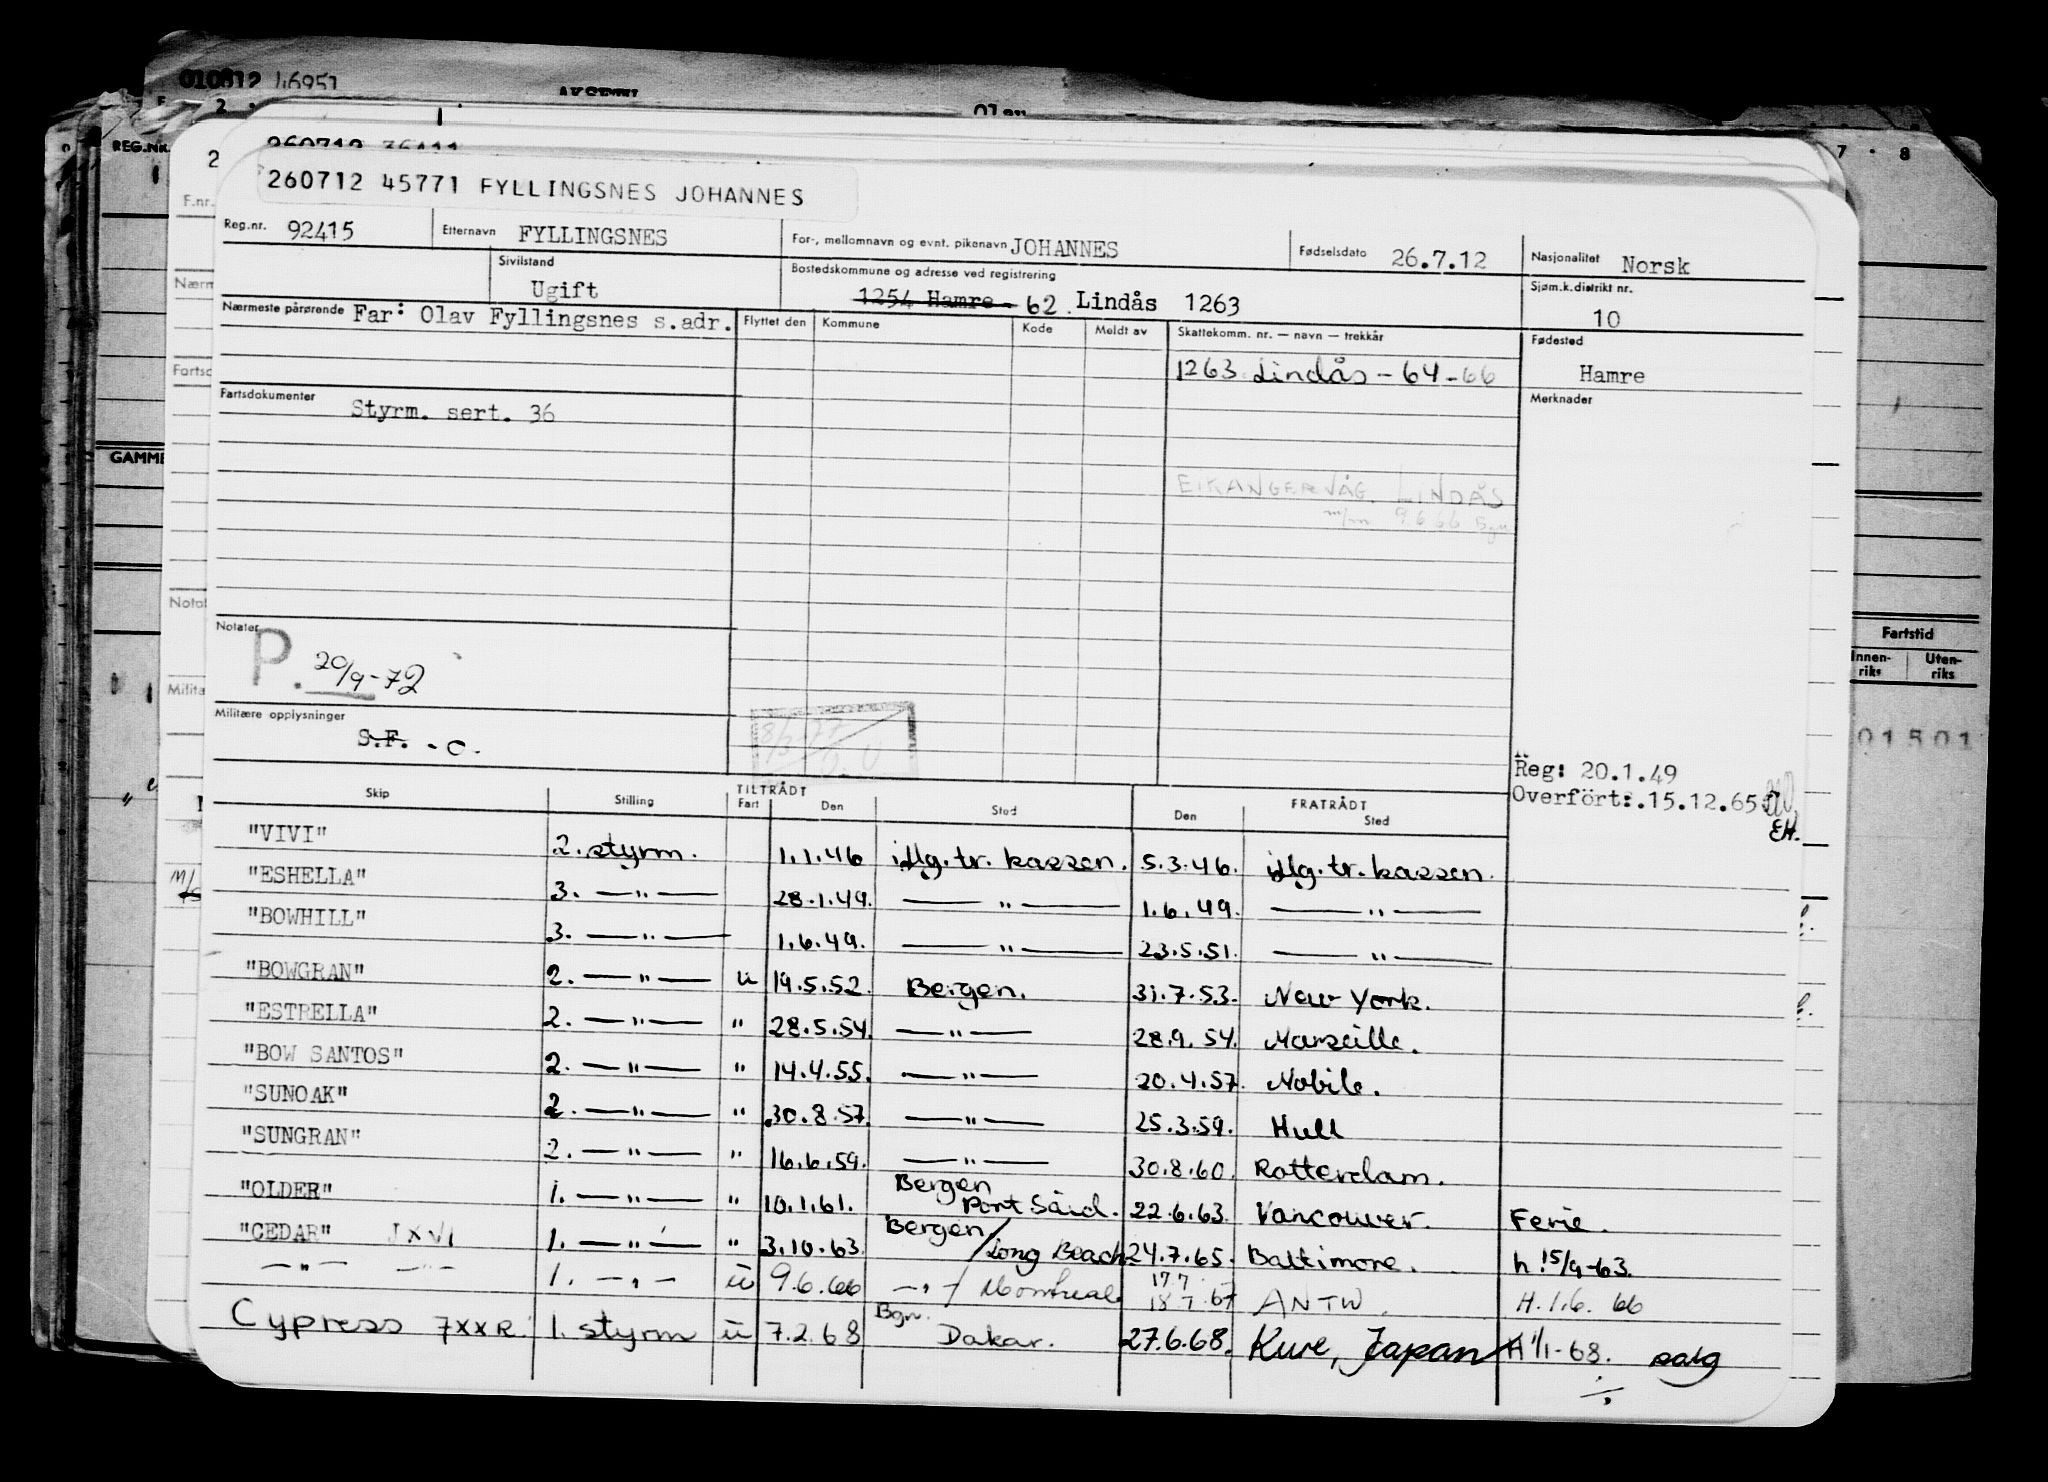 010812 46951
REG.NR.
7 · 8
260712 45771 FYLLINGSNES JOHANNES
Reg.nr. 92415 Etternavn FYLLINGSNES For-, mellomnavn og evnt. pikenavn JOHANNES Fødselsdato 26.7.12 Nasjonalitet Norsk
Sivilstand Ugift Bostedskommune og adresse ved registrering 1254 Hamre - 62. Lindås 1263 Sjøm.k.distrikt nr. 10
Nærmeste pårørende Far: Olav Fyllingsnes s.adr. Flyttet den Kommune Kode Meldt av Skattekomm. nr. — navn — trekkår Fødested
1263 Lindås - 64-66 Hamre
Fartsdokumenter Styrm. sert. 36 Merknader
EIKANGERVÅG. LINDÅS
m/m 9 6 66 Bgn
Notater
P. 20/9-72
Fartstid
Innen-riks Uten-riks
Militære opplysninger
S.F. - c.
8/3-77
01501
Reg: 20.1.49
Overført: 15.12.65
EH.
Skip Stilling TILTRÅDT Fart Den Sted Den FRATRÅDT Sted
"VIVI" 2. styrm. 1.1.46 iflg. tr. kassen. 5.3.46. iflg. tr. kassen.
"ESHELLA" 3. —"— 28.1.49. —"— 1.6.49. —"—
"BOWHILL" 3. —"— 1.6.49. —"— 23.5.51. —"—
"BOWGRAN" 2. —"— u 14.5.52. Bergen. 31.7.53. New York.
"ESTRELLA" 2. —"— " 28.5.54. —"— 28.9.54. Marseille.
"BOW SANTOS" 2. —"— " 14.4.55. —"— 20.4.57. Mobile.
"SUNOAK" 2. —"— " 30.8.57. —"— 25.3.59. Hull
"SUNGRAN" 2. —"— " 16.6.59. —"— 30.8.60. Rotterdam.
"OLDER" 1. —"— " 10.1.61. Bergen Port Said. 22.6.63. Vancouver. Ferie.
"CEDAR" JXVI 1. —"— " 3.10.63. Bergen/Long Beach 24.7.65. Baltimore. h. 15/9-63.
—"— —"— 1. —"— u 9.6.66 —"—/Montreal 17 7 18 7 67 ANTW. H. 1.6. 66
Cypress 7XXR. 1. styrm u 7.2.68 Bgn. Dakar. 27.6.68. Kure, Japan H 1/1-68. salg